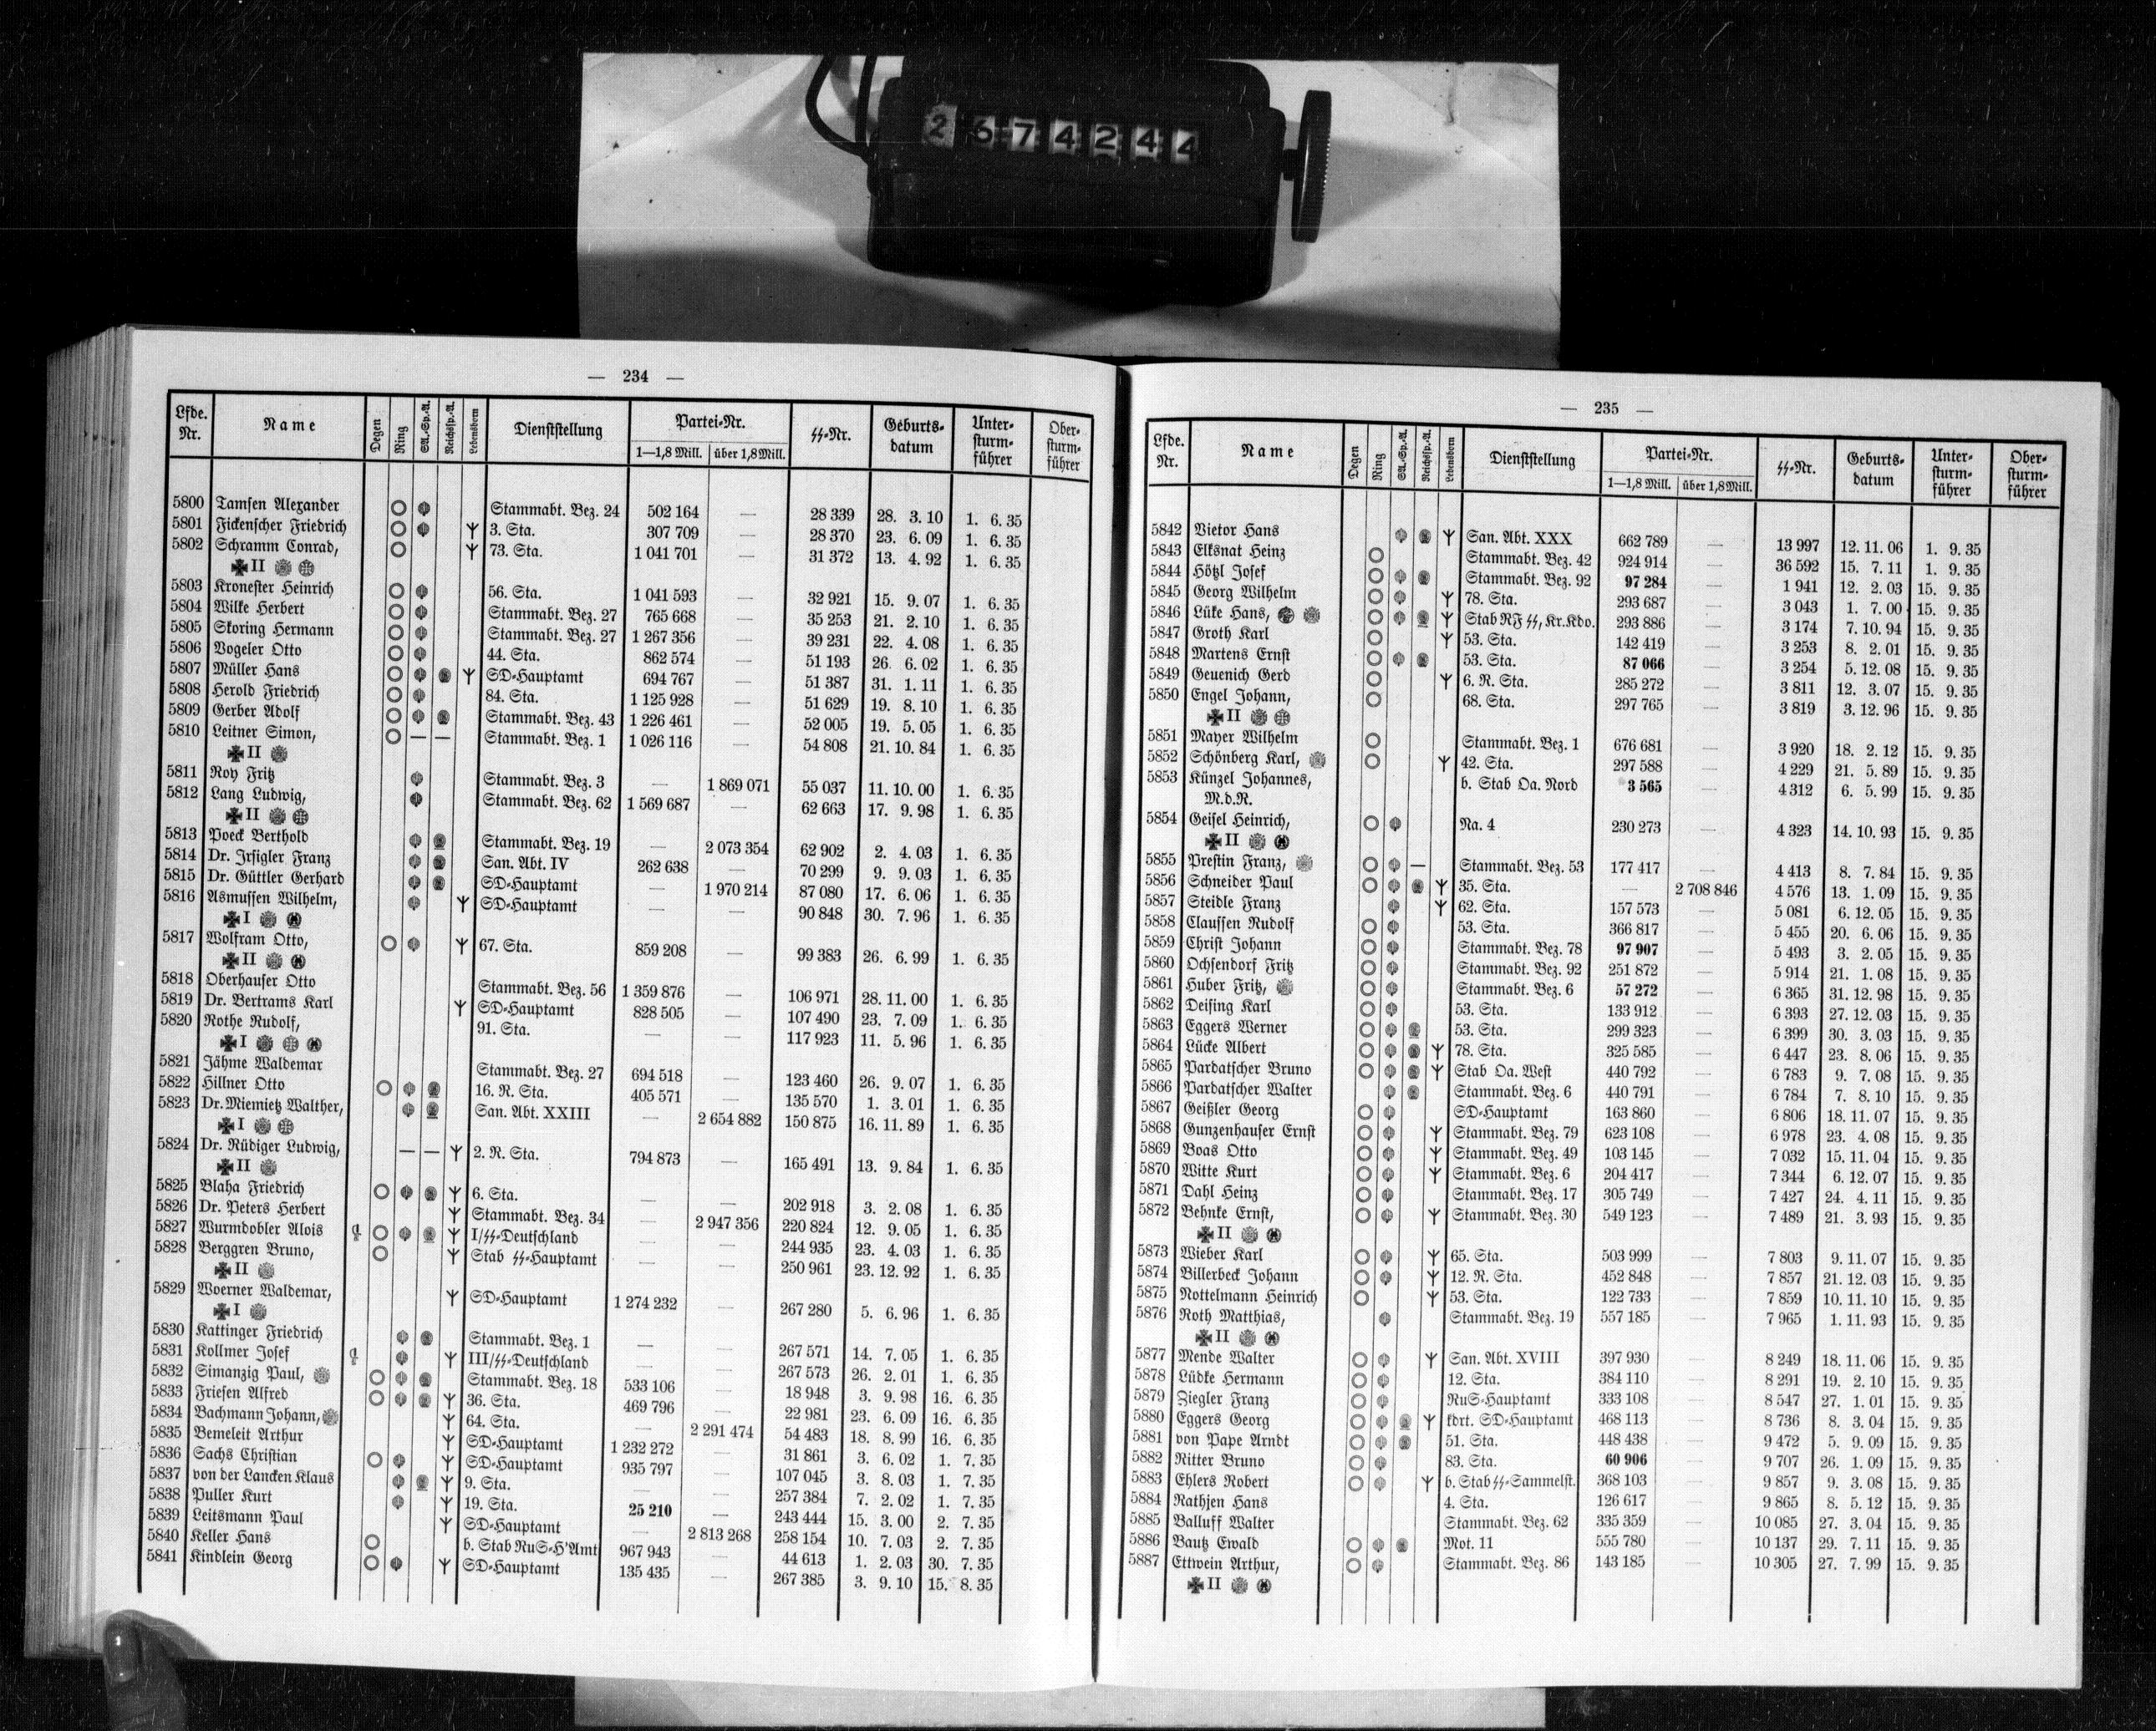 2674244
— 234 —
Lfde. Nr. Name Degen Ring SA.-Sp.-A. Reichssp.-A. Lebensborn Dienststellung Partei-Nr. 1—1,8 Mill. über 1,8 Mill. SS-Nr. Geburts-datum Unter-sturm-führer Ober-sturm-führer
5800 Tamsen Alexander Stammabt. Bez. 24 502 164 — 28 339 28. 3. 10 1. 6. 35
5801 Fickenscher Friedrich 3. Sta. 307 709 — 28 370 23. 6. 09 1. 6. 35
5802 Schramm Conrad, 73. Sta. 1 041 701 — 31 372 13. 4. 92 1. 6. 35
II
5803 Kronester Heinrich 56. Sta. 1 041 593 — 32 921 15. 9. 07 1. 6. 35
5804 Wilke Herbert Stammabt. Bez. 27 765 668 — 35 253 21. 2. 10 1. 6. 35
5805 Skoring Hermann Stammabt. Bez. 27 1 267 356 — 39 231 22. 4. 08 1. 6. 35
5806 Vogeler Otto 44. Sta. 862 574 — 51 193 26. 6. 02 1. 6. 35
5807 Müller Hans SD-Hauptamt 694 767 — 51 387 31. 1. 11 1. 6. 35
5808 Herold Friedrich 84. Sta. 1 125 928 — 51 629 19. 8. 10 1. 6. 35
5809 Gerber Adolf Stammabt. Bez. 43 1 226 461 — 52 005 19. 5. 05 1. 6. 35
5810 Leitner Simon, — — Stammabt. Bez. 1 1 026 116 — 54 808 21. 10. 84 1. 6. 35
II
5811 Roy Fritz Stammabt. Bez. 3 — 1 869 071 55 037 11. 10. 00 1. 6. 35
5812 Lang Ludwig, Stammabt. Bez. 62 1 569 687 — 62 663 17. 9. 98 1. 6. 35
II
5813 Poeck Berthold Stammabt. Bez. 19 — 2 073 354 62 902 2. 4. 03 1. 6. 35
5814 Dr. Irsigler Franz San. Abt. IV 262 638 — 70 299 9. 9. 03 1. 6. 35
5815 Dr. Güttler Gerhard SD-Hauptamt — 1 970 214 87 080 17. 6. 06 1. 6. 35
5816 Asmussen Wilhelm, SD-Hauptamt — — 90 848 30. 7. 96 1. 6. 35
I
5817 Wolfram Otto, 67. Sta. 859 208 — 99 383 26. 6. 99 1. 6. 35
II
5818 Oberhauser Otto Stammabt. Bez. 56 1 359 876 — 106 971 28. 11. 00 1. 6. 35
5819 Dr. Bertrams Karl SD-Hauptamt 828 505 — 107 490 23. 7. 09 1. 6. 35
5820 Rothe Rudolf, 91. Sta. — — 117 923 11. 5. 96 1. 6. 35
I
5821 Jähme Waldemar Stammabt. Bez. 27 694 518 — 123 460 26. 9. 07 1. 6. 35
5822 Hillner Otto 16. R. Sta. 405 571 — 135 570 1. 3. 01 1. 6. 35
5823 Dr. Miemietz Walther, San. Abt. XXIII — 2 654 882 150 875 16. 11. 89 1. 6. 35
I
5824 Dr. Rüdiger Ludwig, — — 2. R. Sta. 794 873 — 165 491 13. 9. 84 1. 6. 35
II
5825 Blaha Friedrich 6. Sta. — — 202 918 3. 2. 08 1. 6. 35
5826 Dr. Peters Herbert Stammabt. Bez. 34 — 2 947 356 220 824 12. 9. 05 1. 6. 35
5827 Wurmdobler Alois I/SS-Deutschland — — 244 935 23. 4. 03 1. 6. 35
5828 Berggren Bruno, Stab SS-Hauptamt — — 250 961 23. 12. 92 1. 6. 35
II
5829 Woerner Waldemar, SD-Hauptamt 1 274 232 — 267 280 5. 6. 96 1. 6. 35
I
5830 Kattinger Friedrich Stammabt. Bez. 1 — — 267 571 14. 7. 05 1. 6. 35
5831 Kollmer Josef III/SS-Deutschland — — 267 573 26. 2. 01 1. 6. 35
5832 Simanzig Paul, Stammabt. Bez. 18 533 106 — 18 948 3. 9. 98 16. 6. 35
5833 Friesen Alfred 36. Sta. 469 796 — 22 981 23. 6. 09 16. 6. 35
5834 Bachmann Johann, 64. Sta. — 2 291 474 54 483 18. 8. 99 16. 6. 35
5835 Bemeleit Arthur SD-Hauptamt 1 232 272 — 31 861 3. 6. 02 1. 7. 35
5836 Sachs Christian SD-Hauptamt 935 797 — 107 045 3. 8. 03 1. 7. 35
5837 von der Lancken Klaus 9. Sta. — — 257 384 7. 2. 02 1. 7. 35
5838 Puller Kurt 19. Sta. 25 210 — 243 444 15. 3. 00 2. 7. 35
5839 Leitsmann Paul SD-Hauptamt — 2 813 268 258 154 10. 7. 03 2. 7. 35
5840 Keller Hans b. Stab RuS-H'Amt 967 943 — 44 613 1. 2. 03 30. 7. 35
5841 Kindlein Georg SD-Hauptamt 135 435 — 267 385 3. 9. 10 15. 8. 35
— 235 —
Lfde. Nr. Name Degen Ring SA.-Sp.-A. Reichssp.-A. Lebensborn Dienststellung Partei-Nr. 1—1,8 Mill. über 1,8 Mill. SS-Nr. Geburts-datum Unter-sturm-führer Ober-sturm-führer
5842 Vietor Hans San. Abt. XXX 662 789 — 13 997 12. 11. 06 1. 9. 35
5843 Elksnat Heinz Stammabt. Bez. 42 924 914 — 36 592 15. 7. 11 1. 9. 35
5844 Hötzl Josef Stammabt. Bez. 92 97 284 — 1 941 12. 2. 03 15. 9. 35
5845 Georg Wilhelm 78. Sta. 293 687 — 3 043 1. 7. 00 15. 9. 35
5846 Lüke Hans, Stab RF SS, Kr. Kdo. 293 886 — 3 174 7. 10. 94 15. 9. 35
5847 Groth Karl 53. Sta. 142 419 — 3 253 8. 2. 01 15. 9. 35
5848 Martens Ernst 53. Sta. 87 066 — 3 254 5. 12. 08 15. 9. 35
5849 Geuenich Gerd 6. R. Sta. 285 272 — 3 811 12. 3. 07 15. 9. 35
5850 Engel Johann, 68. Sta. 297 765 — 3 819 3. 12. 96 15. 9. 35
II
5851 Mayer Wilhelm Stammabt. Bez. 1 676 681 — 3 920 18. 2. 12 15. 9. 35
5852 Schönberg Karl, 42. Sta. 297 588 — 4 229 21. 5. 89 15. 9. 35
5853 Künzel Johannes, b. Stab Oa. Nord 3 565 — 4 312 6. 5. 99 15. 9. 35
M.d.R.
5854 Geisel Heinrich, Na. 4 230 273 — 4 323 14. 10. 93 15. 9. 35
II
5855 Prestin Franz, — Stammabt. Bez. 53 177 417 — 4 413 8. 7. 84 15. 9. 35
5856 Schneider Paul 35. Sta. — 2 708 846 4 576 13. 1. 09 15. 9. 35
5857 Steidle Franz 62. Sta. 157 573 — 5 081 6. 12. 05 15. 9. 35
5858 Claussen Rudolf 53. Sta. 366 817 — 5 455 20. 6. 06 15. 9. 35
5859 Christ Johann Stammabt. Bez. 78 97 907 — 5 493 3. 2. 05 15. 9. 35
5860 Ochsendorf Fritz Stammabt. Bez. 92 251 872 — 5 914 21. 1. 08 15. 9. 35
5861 Huber Fritz, Stammabt. Bez. 6 57 272 — 6 365 31. 12. 98 15. 9. 35
5862 Deising Karl 53. Sta. 133 912 — 6 393 27. 12. 03 15. 9. 35
5863 Eggers Werner 53. Sta. 299 323 — 6 399 30. 3. 03 15. 9. 35
5864 Lücke Albert 78. Sta. 325 585 — 6 447 23. 8. 06 15. 9. 35
5865 Pardatscher Bruno Stab Oa. West 440 792 — 6 783 9. 7. 08 15. 9. 35
5866 Pardatscher Walter Stammabt. Bez. 6 440 791 — 6 784 7. 8. 10 15. 9. 35
5867 Geißler Georg SD-Hauptamt 163 860 — 6 806 18. 11. 07 15. 9. 35
5868 Gunzenhauser Ernst Stammabt. Bez. 79 623 108 — 6 978 23. 4. 08 15. 9. 35
5869 Boas Otto Stammabt. Bez. 49 103 145 — 7 032 15. 11. 04 15. 9. 35
5870 Witte Kurt Stammabt. Bez. 6 204 417 — 7 344 6. 12. 07 15. 9. 35
5871 Dahl Heinz Stammabt. Bez. 17 305 749 — 7 427 24. 4. 11 15. 9. 35
5872 Behnke Ernst, Stammabt. Bez. 30 549 123 — 7 489 21. 3. 93 15. 9. 35
II
5873 Wieber Karl 65. Sta. 503 999 — 7 803 9. 11. 07 15. 9. 35
5874 Billerbeck Johann 12. R. Sta. 452 848 — 7 857 21. 12. 03 15. 9. 35
5875 Nottelmann Heinrich 53. Sta. 122 733 — 7 859 10. 11. 10 15. 9. 35
5876 Roth Matthias, Stammabt. Bez. 19 557 185 — 7 965 1. 11. 93 15. 9. 35
II
5877 Mende Walter San. Abt. XVIII 397 930 — 8 249 18. 11. 06 15. 9. 35
5878 Lüdke Hermann 12. Sta. 384 110 — 8 291 19. 2. 10 15. 9. 35
5879 Ziegler Franz RuS-Hauptamt 333 108 — 8 547 27. 1. 01 15. 9. 35
5880 Eggers Georg kdrt. SD-Hauptamt 468 113 — 8 736 8. 3. 04 15. 9. 35
5881 von Pape Arndt 51. Sta. 448 438 — 9 472 5. 9. 09 15. 9. 35
5882 Ritter Bruno 83. Sta. 60 906 — 9 707 26. 1. 09 15. 9. 35
5883 Ehlers Robert b. Stab SS-Sammelst. 368 103 — 9 857 9. 3. 08 15. 9. 35
5884 Rathjen Hans 4. Sta. 126 617 — 9 865 8. 5. 12 15. 9. 35
5885 Balluff Walter Stammabt. Bez. 62 335 359 — 10 085 27. 3. 04 15. 9. 35
5886 Bautz Ewald Mot. 11 555 780 — 10 137 29. 7. 11 15. 9. 35
5887 Ettwein Arthur, Stammabt. Bez. 86 143 185 — 10 305 27. 7. 99 15. 9. 35
II